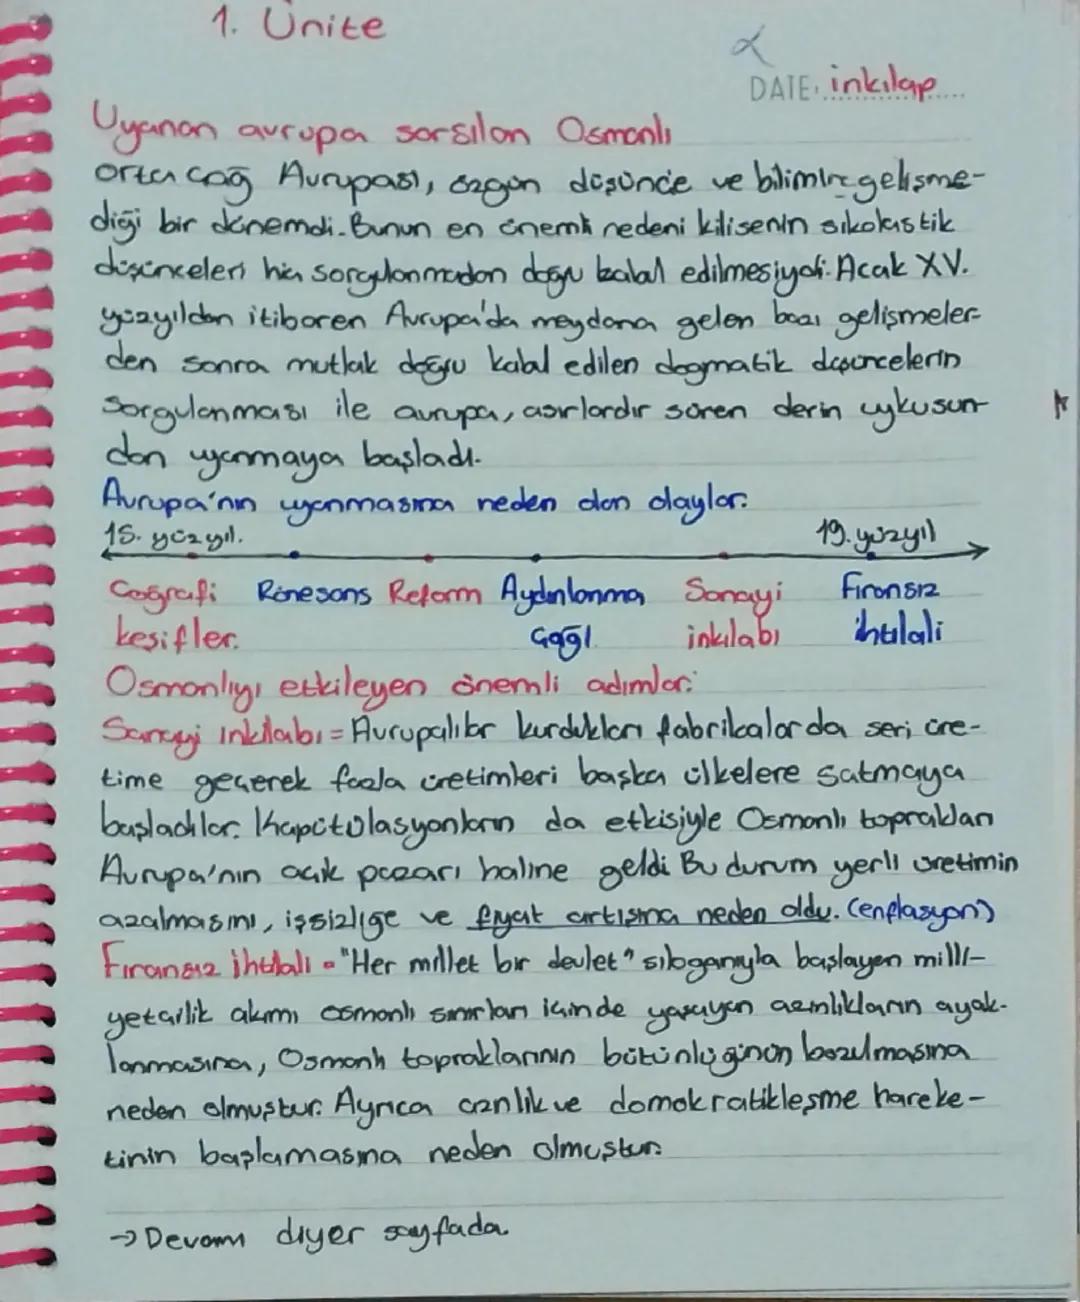 1. Ünite
DATE: inkılap
Uyanan avrupa sarsılan Osmanlı
orta çağ Avrupası, özgün düşünce ve bilimin gelişme-
diği bir dönemdi. Bunun en önemli nedeni kilisenin sikolastik
düşünceleri hiç sorgulanmadan doğru kabal edilmesiydi. Acak XV.
yüzyıldan itibaren Avrupa'da meydana gelen bazı gelişmeler-
den sonra mutlak doğru kabal edilen dogmatik düşüncelerin
Sorgulanması ile avrupa, asırlardır süren derin uykusun-
dan uyanmaya başladı.
Avrupa'nın uyanmasına neden olan olaylar:
15. yüzyıl. 19. yüzyıl
Coğrafi Rönesans Reform Aydınlanma Sanayi Fıransız
keşifler. çağı inkılabı ihtilali
Osmanlıyı etkileyen önemli adımlar:
Sanayi inkılabı = Avrupalılar kurdukları fabrikalarda seri üre-
time geçerek fazla üretimleri başka ülkelere satmaya
başladılar. Kapitülasyonların da etkisiyle Osmanlı toprakları
Avrupa'nın açık pazarı haline geldi Bu durum yerli üretimin
azalmasını, işsizliğe ve fiyat artışına neden oldu. (enflasyon)
Fıransız ihtilali = "Her millet bir devlet" sloganıyla başlayan milli-
yetçilik akımı osmanlı sınırları içinde yaşayan azınlıkların ayak-
lanmasına, Osmanlı topraklarının bütünlüğünün bozulmasına
neden olmuştur. Ayrıca ve domokratikleşme hareke-
tinin başlamasına neden olmuştur.
→ Devamı diyer sayfada